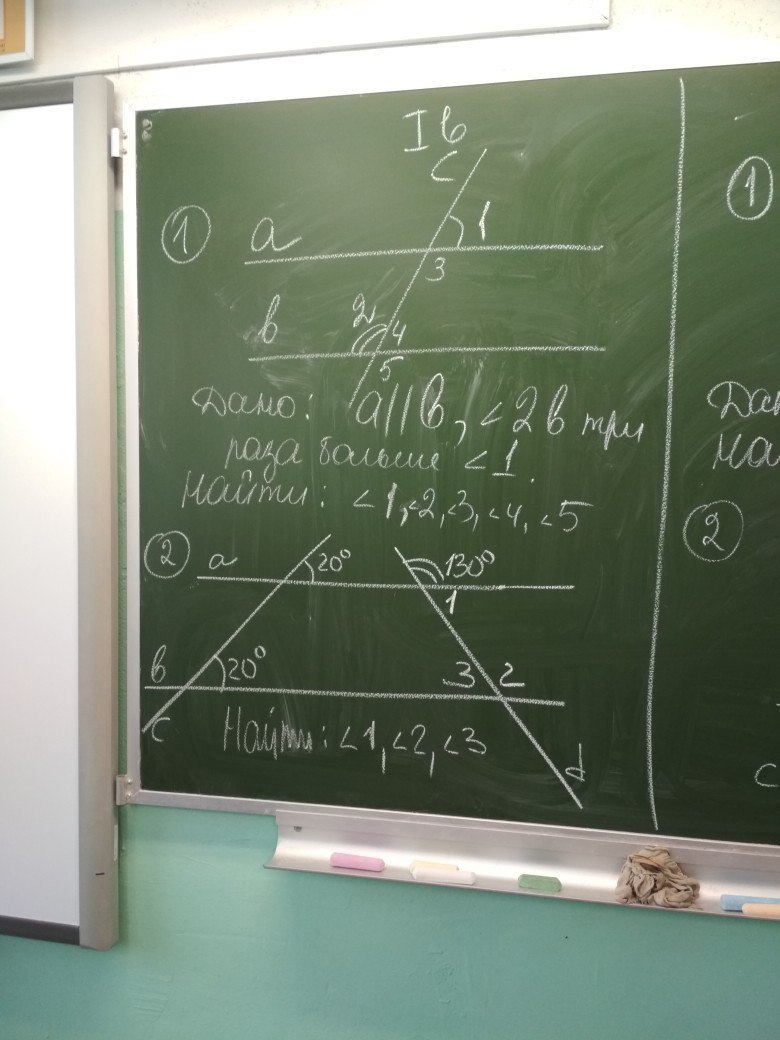 I в
c
① a 1
3
в 2 4
5
Дано: a||в, <2 в три
раза больше <1.
Найти: <1, <2, <3, <4, <5
② a 20° 130°
1
в 20° 3 2
c Найти: <1, <2, <3
d
①
Дан
Най
②
c